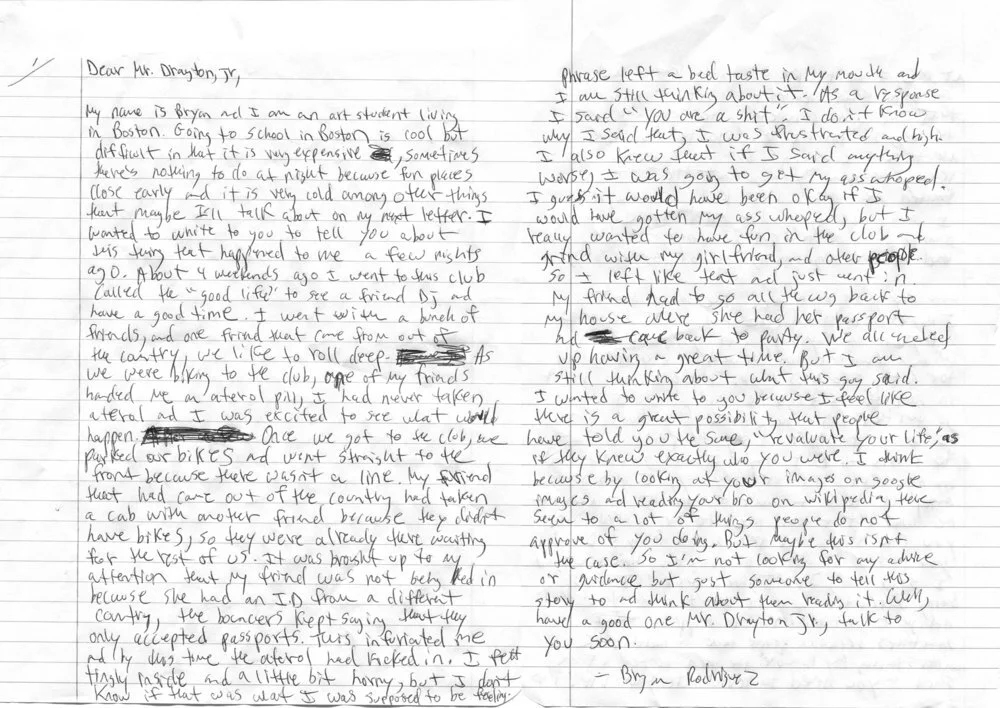 Dear Mr. Drayton, Jr,
My name is Bryan and I am an art student living
in Boston. Going to school in Boston is cool but
difficult in that it is very expensive, sometimes
there's nothing to do at night because fun places
close early and it is very cold among other things
that maybe I'll talk about on my next letter. I
wanted to write to you to tell you about
this thing that happened to me a few nights
ago. About 4 weekends ago I went to this club
called the "good life" to see a friend Dj and
have a good time. I went with a bunch of
friends, and one friend that came from out of
the country, we like to roll deep. As
we were biking to the club, one of my friends
handed me an aterol pill, I had never taken
aterol and I was excited to see what would
happen. Once we got to the club, we
parked our bikes and went straight to the
front because there wasn't a line. My friend
that had came out of the country had taken
a cab with another friend because they didn't
have bikes, so they were already there waiting
for the rest of us. It was brought up to my
attention that my friend was not being led in
because she had an I.D from a different
country, the bouncers kept saying that they
only accepted passports. This infuriated me
and by this time the aterol had kicked in. I felt
tingly inside and a little bit horny, but I don't
know if that was what I was supposed to be feeling.
phrase left a bad taste in my mouth and
I am still thinking about it. As a response
I said "you are a shit". I don't know
why I said that, I was frustrated and high.
I also knew that if I said anything
worse, I was going to get my ass whoped.
I guess it would have been okay if I
would have gotten my ass whoped, but I
really wanted to have fun in the club and
grind with my girlfriend, and other people.
So I left like that and just went in.
My friend had to go all the way back to
my house where she had her passport
and came back to party. We all ended
up having a great time. But I am
still thinking about what this guy said.
I wanted to write to you because I feel like
there is a great possibility that people
have told you the same, "revaluate your life", as
if they knew exactly who you were. I think
because by looking at your images on google
images and reading your bio on wikipedia, there
seem to a lot of things people do not
approve of you doing. But maybe this isn't
the case. So I'm not looking for any advice
or guidance but just someone to tell this
story to and think about them reading it. Well,
have a good one Mr. Drayton Jr, talk to
you soon.
- Bryan Rodriguez